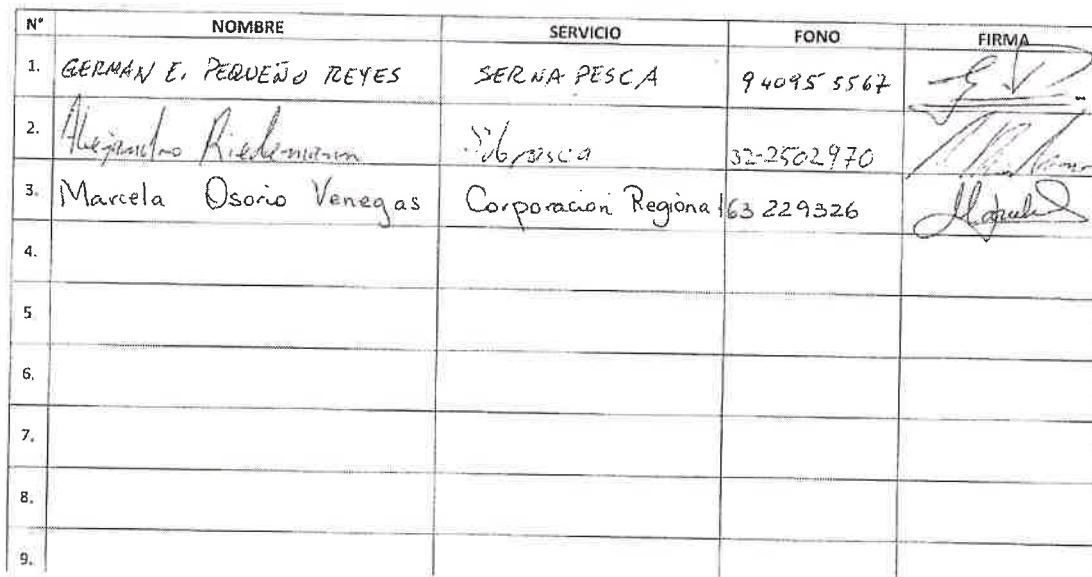 N° NOMBRE SERVICIO FONO FIRMA
1. GERMAN E. PEQUEÑO REYES SERNAPESCA 940955567
2. Alejandro Riedemann Subpesca 32-2502970
3. Marcela Osorio Venegas Corporacion Regional 63 229326
4.
5
6.
7.
8.
9.